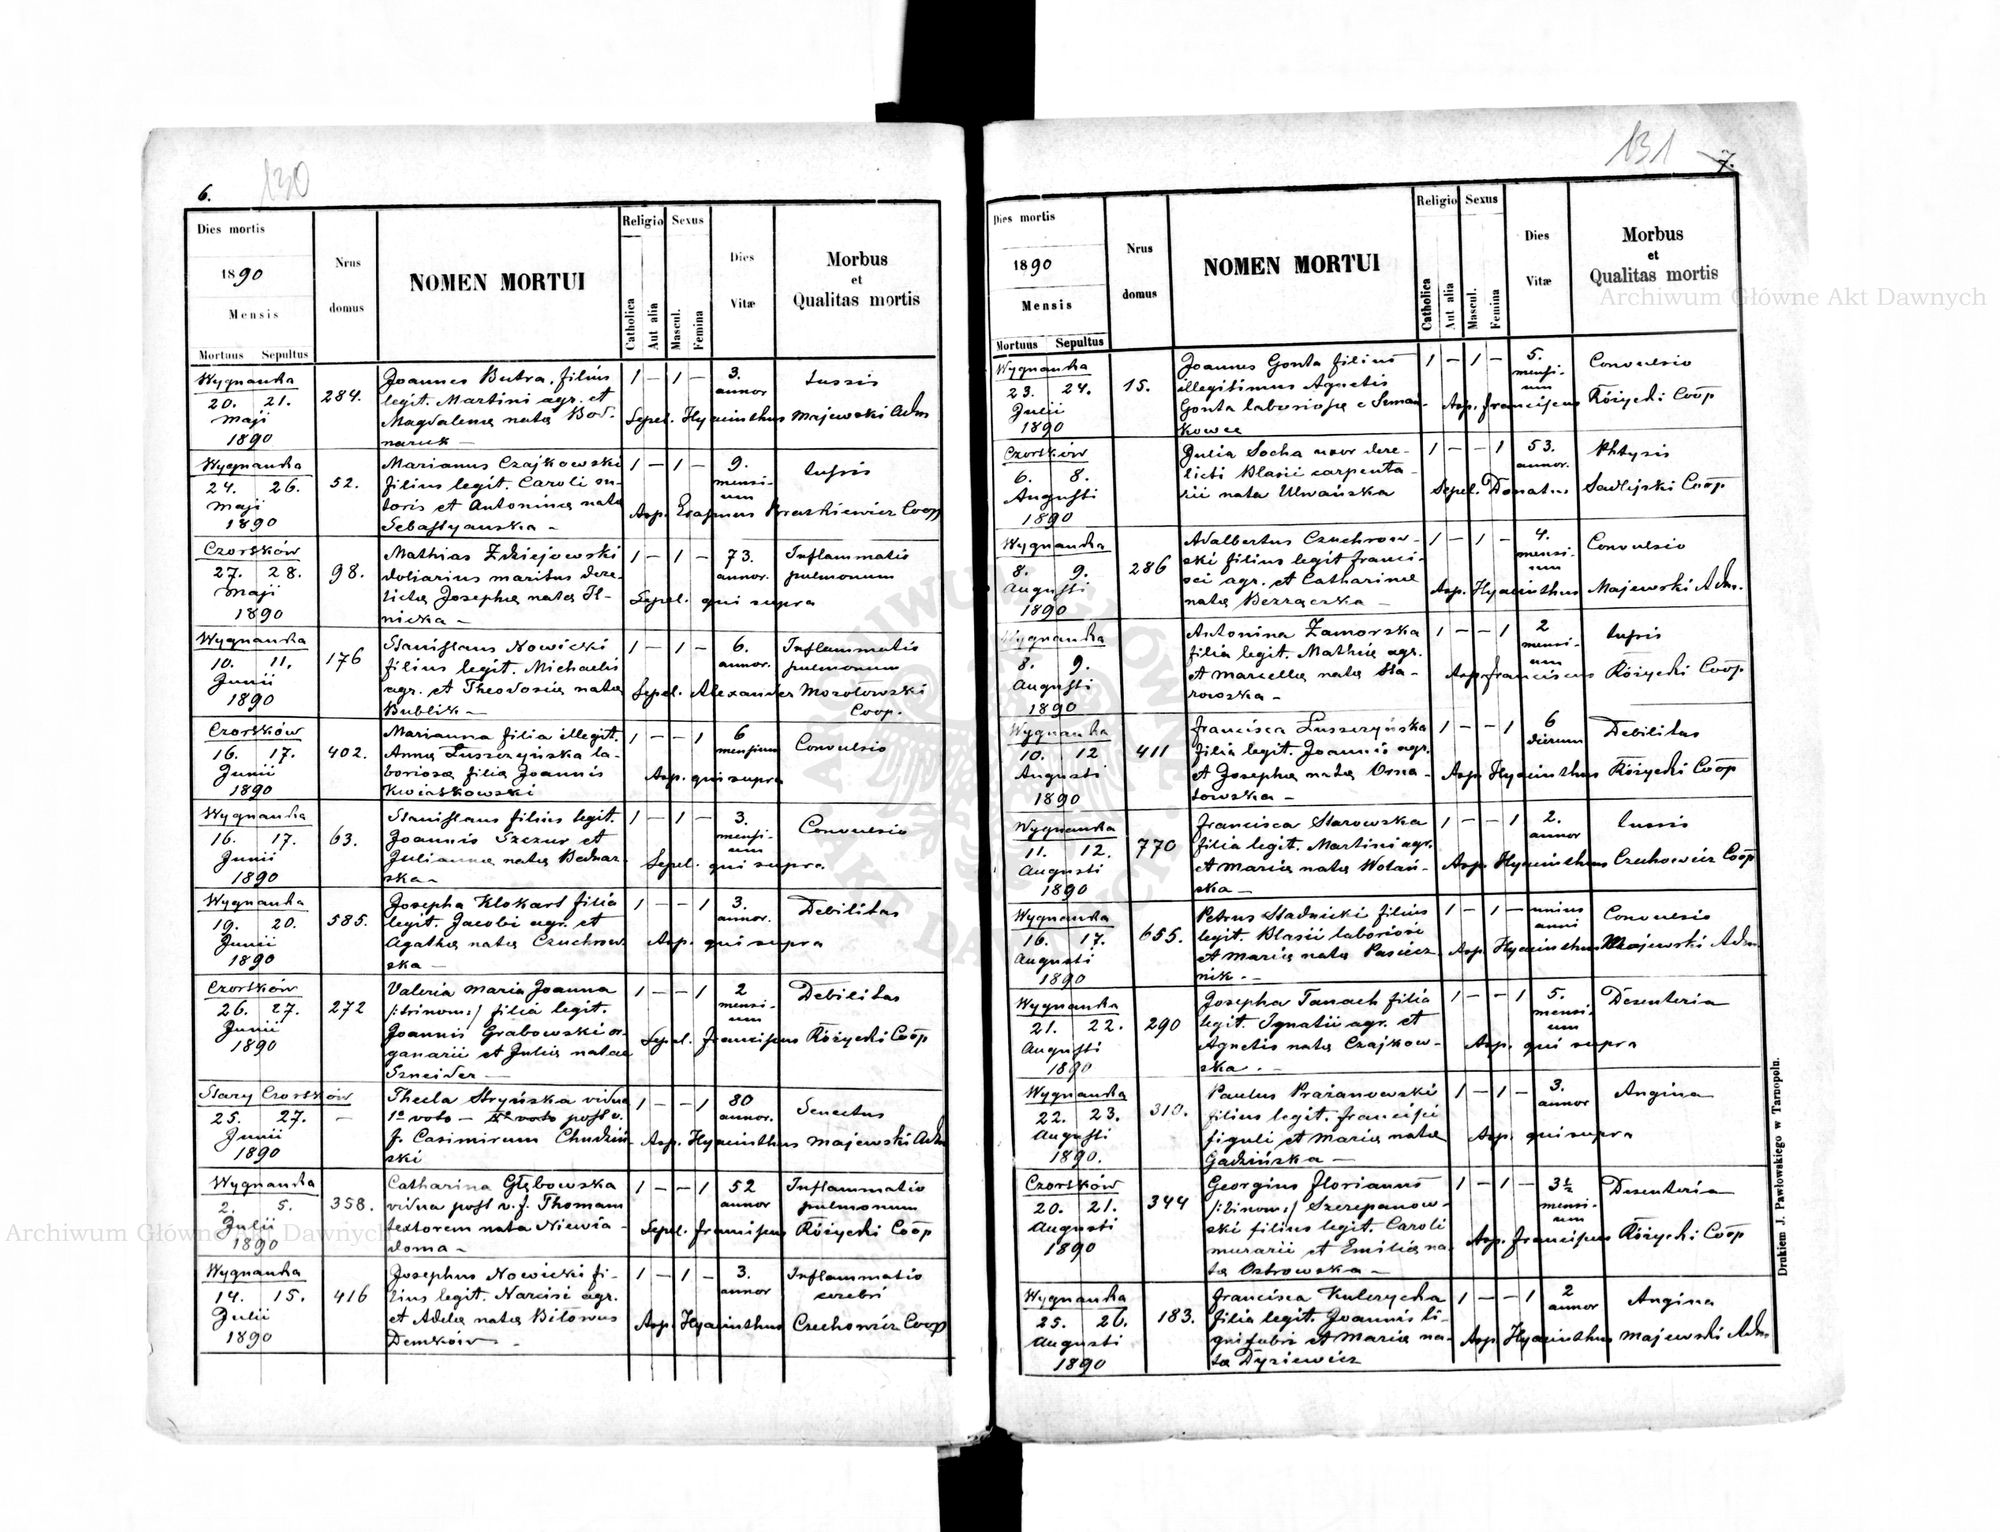 6.
130
Dies mortis
1890
Mensis
Mortuus Sepultus
Nrus
domus
NOMEN MORTUI
Religio
Catholica
Aut alia
Sexus
Mascul.
Femina
Dies
Vitæ
Morbus
et
Qualitas mortis
Wygnanka
20. 21.
Maji
1890
284.
Joannes Butra, filius
legit. Martini agr. et
Magdalena nata Bod-
naruk —
1 — 1 —
3.
annor
tussis
Sepel. Hyacinthus Majewski Adm
Wygnanka
24. 26.
Maji
1890
52.
Marianus Czajkowski
filius legit. Caroli su-
toris et Antonina nata
Sebastyanska —
1 — 1 —
9.
mensi-
um
tussis
Asp. Erasmus Coop
Czortków
27. 28.
Maji
1890
98.
Mathias Zdziejowski
doliarius maritus dere-
licta Josepha nata Il-
nicka —
1 — 1 —
73.
annor.
Inflammatio
pulmonum
Sepel. qui supra
Wygnanka
10. 11.
Junii
1890
176
Stanislaus Nowicki
filius legit. Michaelis
agr. et Theodosia nata
Bublik —
1 — 1 —
6.
annor.
Inflammatio
pulmonum
Sepel. Alexander Morotowski
Coop.
Czortków
16. 17.
Junii
1890
402.
Marianna filia illegit.
Anna Luszczyńska la-
boriosa filia Joannis
Kwiatkowski
1 — — 1
6
mensium
Convulsio
Asp. qui supra
Wygnanka
16. 17.
Junii
1890
63.
Stanislaus filius legit.
Joannis Szczur et
Julianna nata Bednar-
ska —
1 — 1 —
3.
mensi-
um
Convulsio
Sepel. qui supra
Wygnanka
19. 20.
Junii
1890
585.
Josepha Klokart filia
legit. Jacobi agr. et
Agatha nata Czuchrow
ska —
1 — — 1
3.
annor.
Debilitas
Asp. qui supra
Czortków
26. 27.
Junii
1890
272
Valeria Maria Joanna
/:trinom:/ filia legit.
Joannis Grabowski or-
ganarii et Julia natae
Szneider —
1 — — 1
2
mensi-
um
Debilitas
Sepel. Franciscus Różycki Coop
Stary Czortków
25. 27. —
Junii
1890
Thecla Stryńska vidua
1º voto — IIº voto post v.
f. Casimirum Chudziń
ski
1 — — 1
80
annor.
Senectus
Asp. Hyacinthus Majewski Adm
Wygnanka
2. 5.
Julii
1890
358.
Catharina Głębowska
vidua post v. f. Thomam
textorem nata Niewia-
doma —
1 — — 1
52
annor
Inflammatio
pulmonum
Sepel. Franciscus Różycki Coop
Wygnanka
14. 15.
Julii
1890
416
Josephus Nowicki fi-
lius legit. Narcisi agr.
et Adela nata Bitowus
Demków —
1 — 1 —
3.
annor
Inflammatio
cerebri
Asp. Hyacinthus Czechowicz Coop
131
7.
Dies mortis
1890
Mensis
Mortuus Sepultus
Nrus
domus
NOMEN MORTUI
Religio
Catholica
Aut alia
Sexus
Mascul.
Femina
Dies
Vitæ
Morbus
et
Qualitas mortis
Wygnanka
23. 24.
Julii
1890
15.
Joannes Gonta filius
illegitimus Agnetis
Gonta laboriosa e Seman-
kowce
1 — 1 —
5.
mensi-
um
Convulsio
Asp. Franciscus Różycki Coop
Czortków
6. 8.
Augusti
1890
Julia Socha uxor dere-
licti Blasii carpenta-
rii nata Ulwańska
1 — — 1
53.
annor.
Phtysis
Sepel. Donatus Sadlejski Coop
Wygnanka
8. 9.
Augusti
1890
286
Adalbertus Czuchrow-
ski filius legit Franci-
sci agr. et Catharina
nata Bezraczka —
1 — 1 —
4.
mensi-
um
Convulsio
Asp. Hyacinthus Majewski Adm.
Wygnanka
8. 9.
Augusti
1890
Antonina Zamorska
filia legit. Mathia agr.
et Marcella nata Sta-
rowska —
1 — — 1
2
mensi-
um
tussis
Asp. Franciscus Różycki Coop
Wygnanka
10. 12
Augusti
1890
411
Francisca Luszczyńska
filia legit. Joannis agr.
et Josepha nata Orna-
towska —
1 — — 1
6
dierum
Debilitas
Asp. Hyacinthus Różycki Coop
Wygnanka
11. 12.
Augusti
1890
770
Francisca Starowska
filia legit. Martini agr.
et Maria nata Wolań-
ska —
1 — — 1
2.
annor
tussis
Asp. Hyacinthus Czechowicz Coop
Wygnanka
16. 17.
Augusti
1890
655.
Petrus Stadnicki filius
legit. Blasii laboriosi
et Maria nata Pasiecz-
nik. —
1 — 1 —
unius
anni
Convulsio
Asp. Hyacinthus Majewski Adm
Wygnanka
21. 22.
Augusti
1890
290
Josepha Tanach filia
legit. Ignatii agr. et
Agnetis nata Czajkow-
ska. —
1 — — 1
5.
mensi-
um
Desenteria
Asp. qui supra
Wygnanka
22. 23.
Augusti
1890.
310.
Paulus Prażanowski
filius legit. Francisci
figuli et Maria nata
Gadzińska —
1 — 1 —
3.
annor
Angina
Asp. qui supra
Czortków
20. 21.
Augusti
1890
344
Georgius Florianus
/:binom:/ Szczepanow-
ski filius legit. Caroli
murarii et Emilia na-
ta Ostrowska —
1 — 1 —
3½
mensi-
um
Desenteria
Asp. Franciscus Różycki Coop
Wygnanka
25. 26.
Augusti
1890
183.
Francisca Kulczycka
filia legit. Joannis li-
gnifabri et Maria na-
ta Dyziewicz
1 — — 1
2
annor
Angina
Asp. Hyacinthus Majewski Adm
Drukiem J. Pawłowskiego w Tarnopolu.
Archiwum Główne Akt Dawnych
Archiwum Główne Akt Dawnych
ARCHIWUM GŁÓWNE AKT DAWNYCH